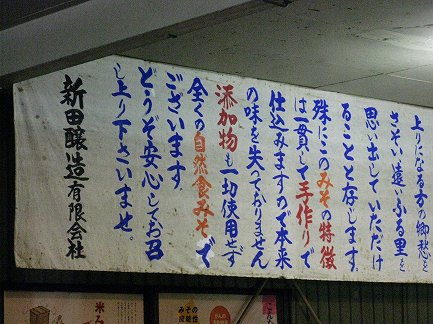 上りになる方の郷愁を
さそい、遠いふる里を
思い出していただけ
ることと存します。
殊にこのみその特徴
は一貫して手作りで
仕込みますので本来
の味を失っておりません
添加物も一切使用せず
全くの自然食みそで
ございます
どうぞ安心してお召
し上り下さいませ。
新田醸造有限会社